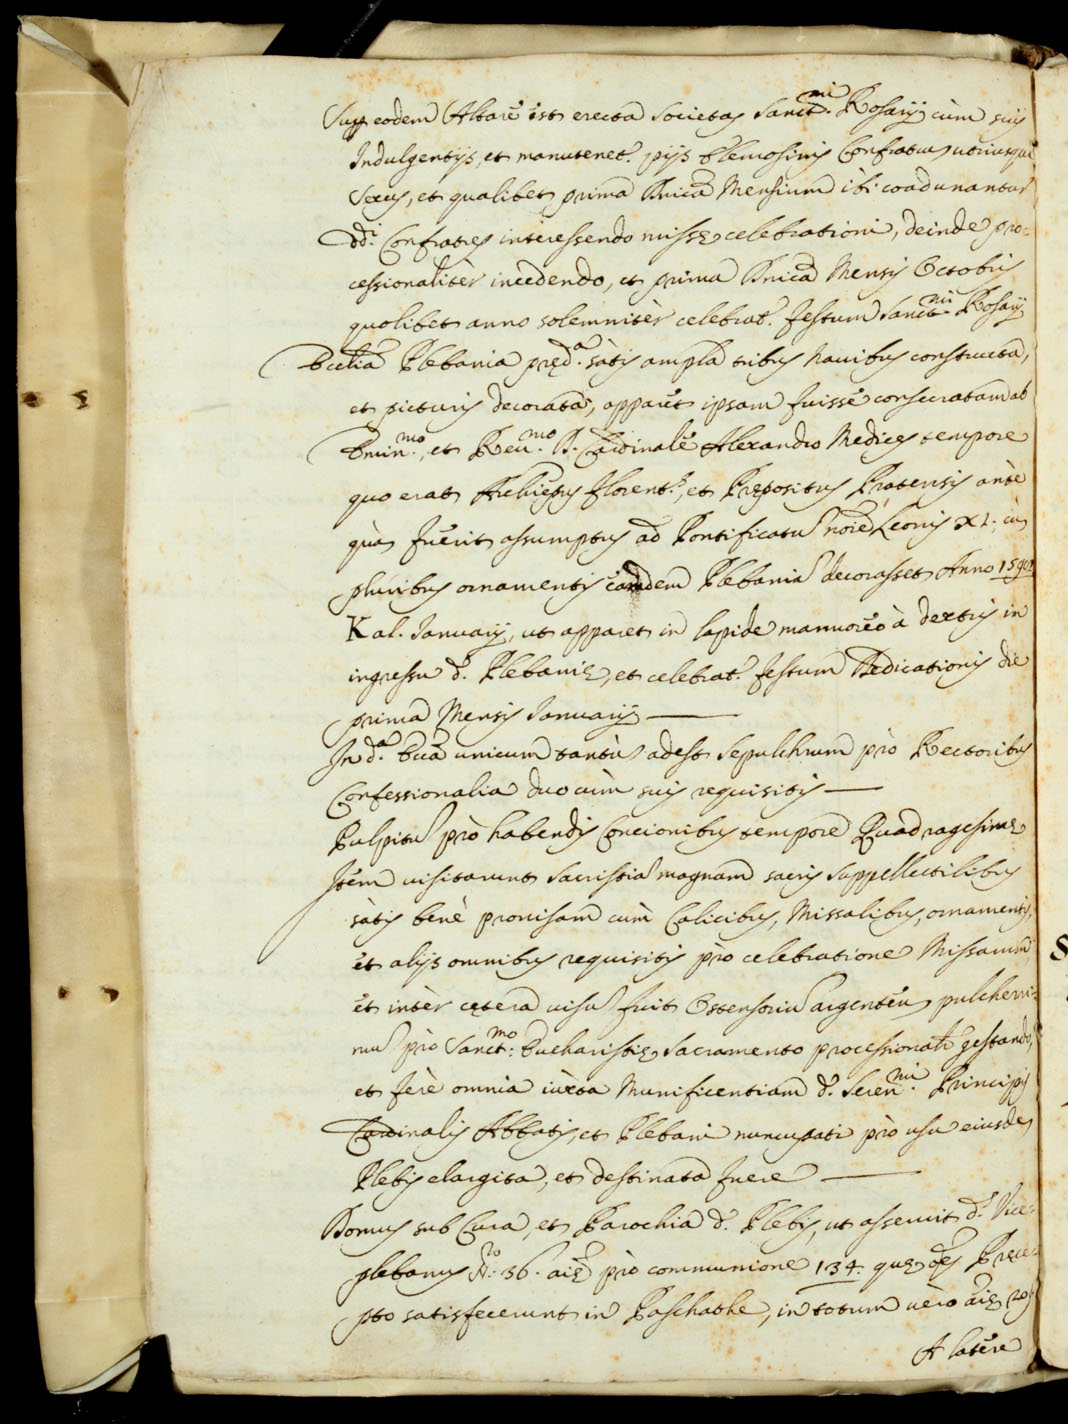 Sup. eodem Altare est erecta Societas Sanct.mi Rosarij cùm suis
Indulgentijs, et manutenet.r pijs Elemosinis Confratrũ utriusque
Sexus, et qualibet prima Dnica Mensium ibi coadunantur
dd.i Confratres interessendo missę celebrationi, deinde pro=
cessionalitèr incedendo, et prima Dnica Mensis Octobris
quolibet anno solemnitèr celebrat.r festum Sanct.mi Rosarij
Ecclia Plebania pręd.a sàtis ampla tribus Navibus constructa,
et picturis decorata, apparet ipsam fuisse consecratam ab
Emin.mo, et Reu.mo D. Cardinale Alexandro Medices tempore
quo erat Archiepus Florent.s, et Prępositus Pratensis antè
quàm fuerit assumptus ad Pontificatũ noie Leonis XI; cùm
pluribus ornamentis eamdem Plebaniã decorasset Anno
Kal. Januarij, ut apparet in lapide marmoreo à dextris in
ingressu d. Plebanię, et celebrat.r festum Dedicationis die
prima Mensis Januarij
In d.a Ecca unicum tantũ adest Sepulchrum prò Rectoribus
Confessionalia duo cùm suis requisitis
Pulpitũ prò habendis Concionibus tempore Quadragesimę
Item uisitarunt Sacristiã magnam sacris suppellectilibus
sàtis benè prouisam cùm Calicibus, Missalibus, ornamentis,
et alijs omnibus requisitis prò celebratione Missarum
et intèr cętera uisũ fuit Ostensoriũ argenteũ pulcherri=
mũ prò Sanct.mo Eucharistię Sacramento processionalr gestando,
et ferè omnia iuxta Munificentiam d. Seren.mi Principis
Cardinalis Abbatis, et Plebani nuncupati prò usu eiusdẽ
Plebis elargita, et destinata fuere
Domus sub Cura, et Parochia d. Plebis, ut asseruit d.s Vice=
plebanus N.ro 36. aię prò communione 134. quę oes Pręce=
pto satisfecerunt in Paschathe, in totum uèro aię
A latere